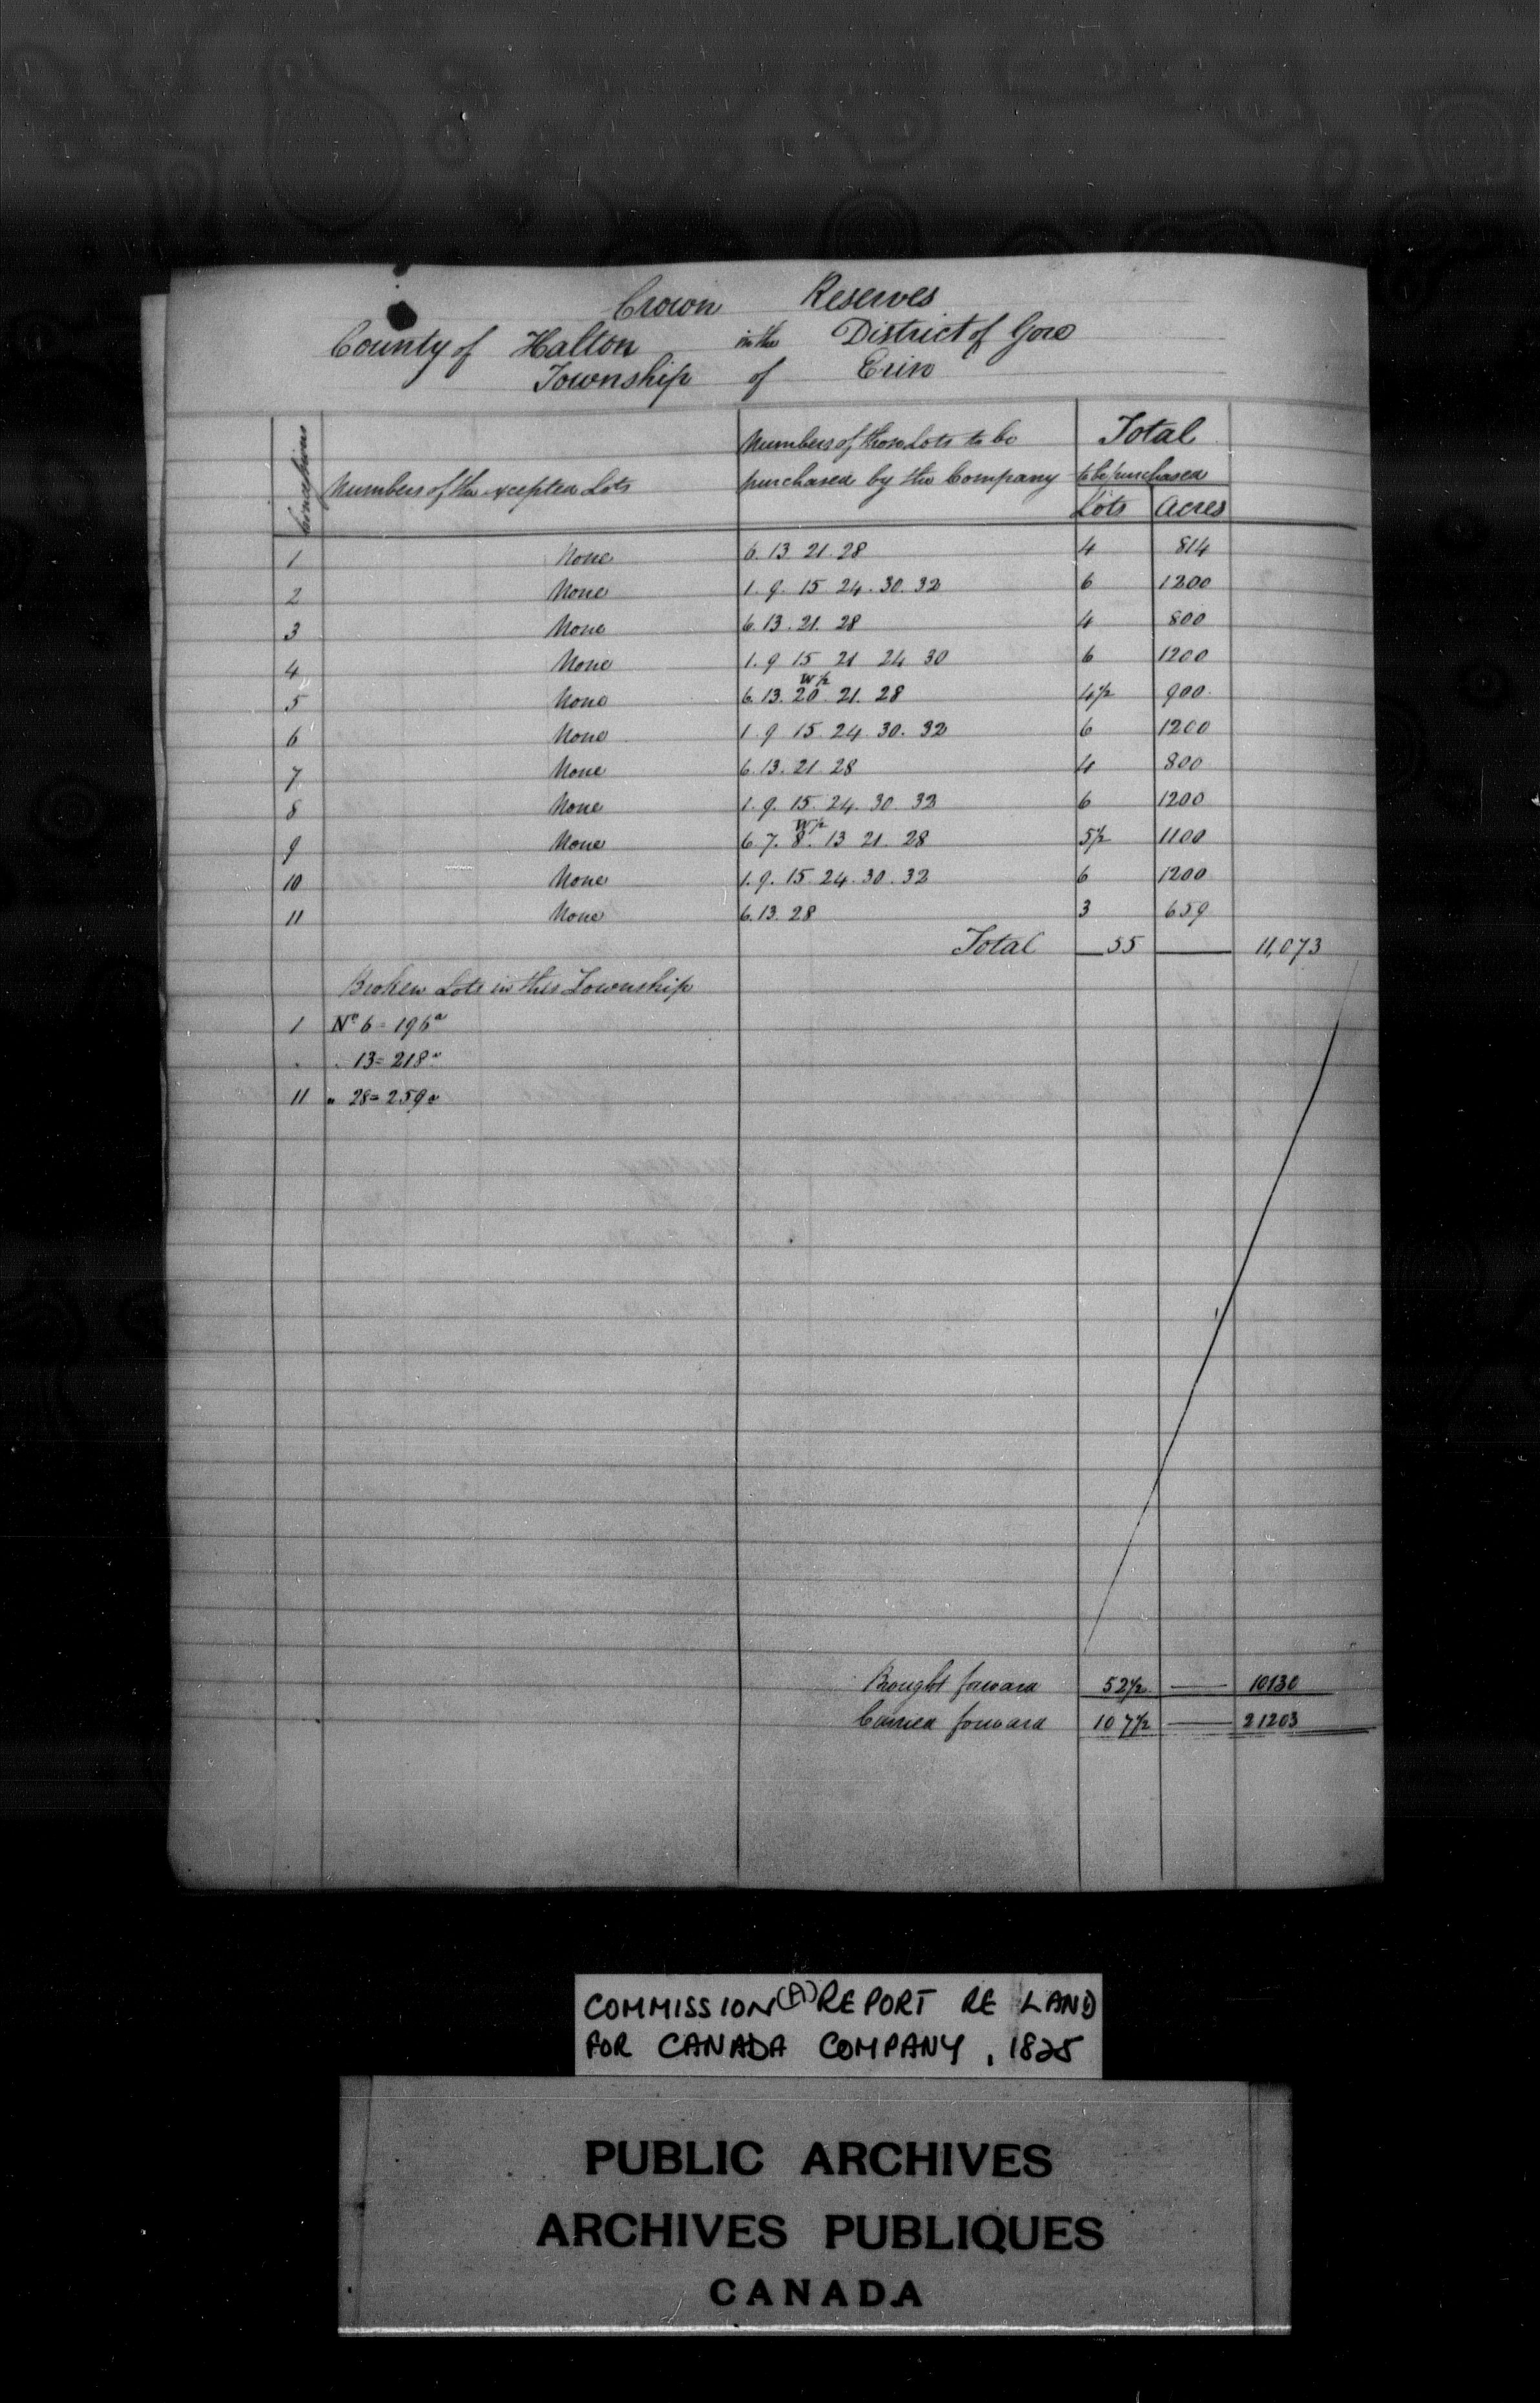 Crown Reserves
County of Halton in the District of Gore
Township of Erin
Concessions
Numbers of the excepted Lots
Numbers of those Lots to be purchased by the Company
Total to be purchased
Lots Acres
1 None 6. 13 21. 28 4 814
2 None 1. 9. 15 24. 30. 32 6 1200
3 None 6. 13. 21. 28 4 800
4 None 1. 9 15 21 24 30 6 1200
W½
5 None 6. 13. 20. 21. 28 4½ 900
6 None 1. 9 15 24. 30. 32 6 1200
7 None 6. 13. 21. 28 4 800
8 None 1. 9. 15. 24. 30. 32 6 1200
W½
9 None 6 7. 8. 13 21. 28 5½ 1100
10 None 1. 9. 15. 24. 30. 32 6 1200
11 None 6. 13. 28 3 659
Total 55 11,073
Broken Lots in this Township
1 No 6 = 196a
. . 13 = 218a
11 " 28 = 259a
Brought forward 52½ 10130
Carried forward 107½ 21203
COMMISSION (A) REPORT RE LAND
FOR CANADA COMPANY, 1825
PUBLIC ARCHIVES
ARCHIVES PUBLIQUES
CANADA